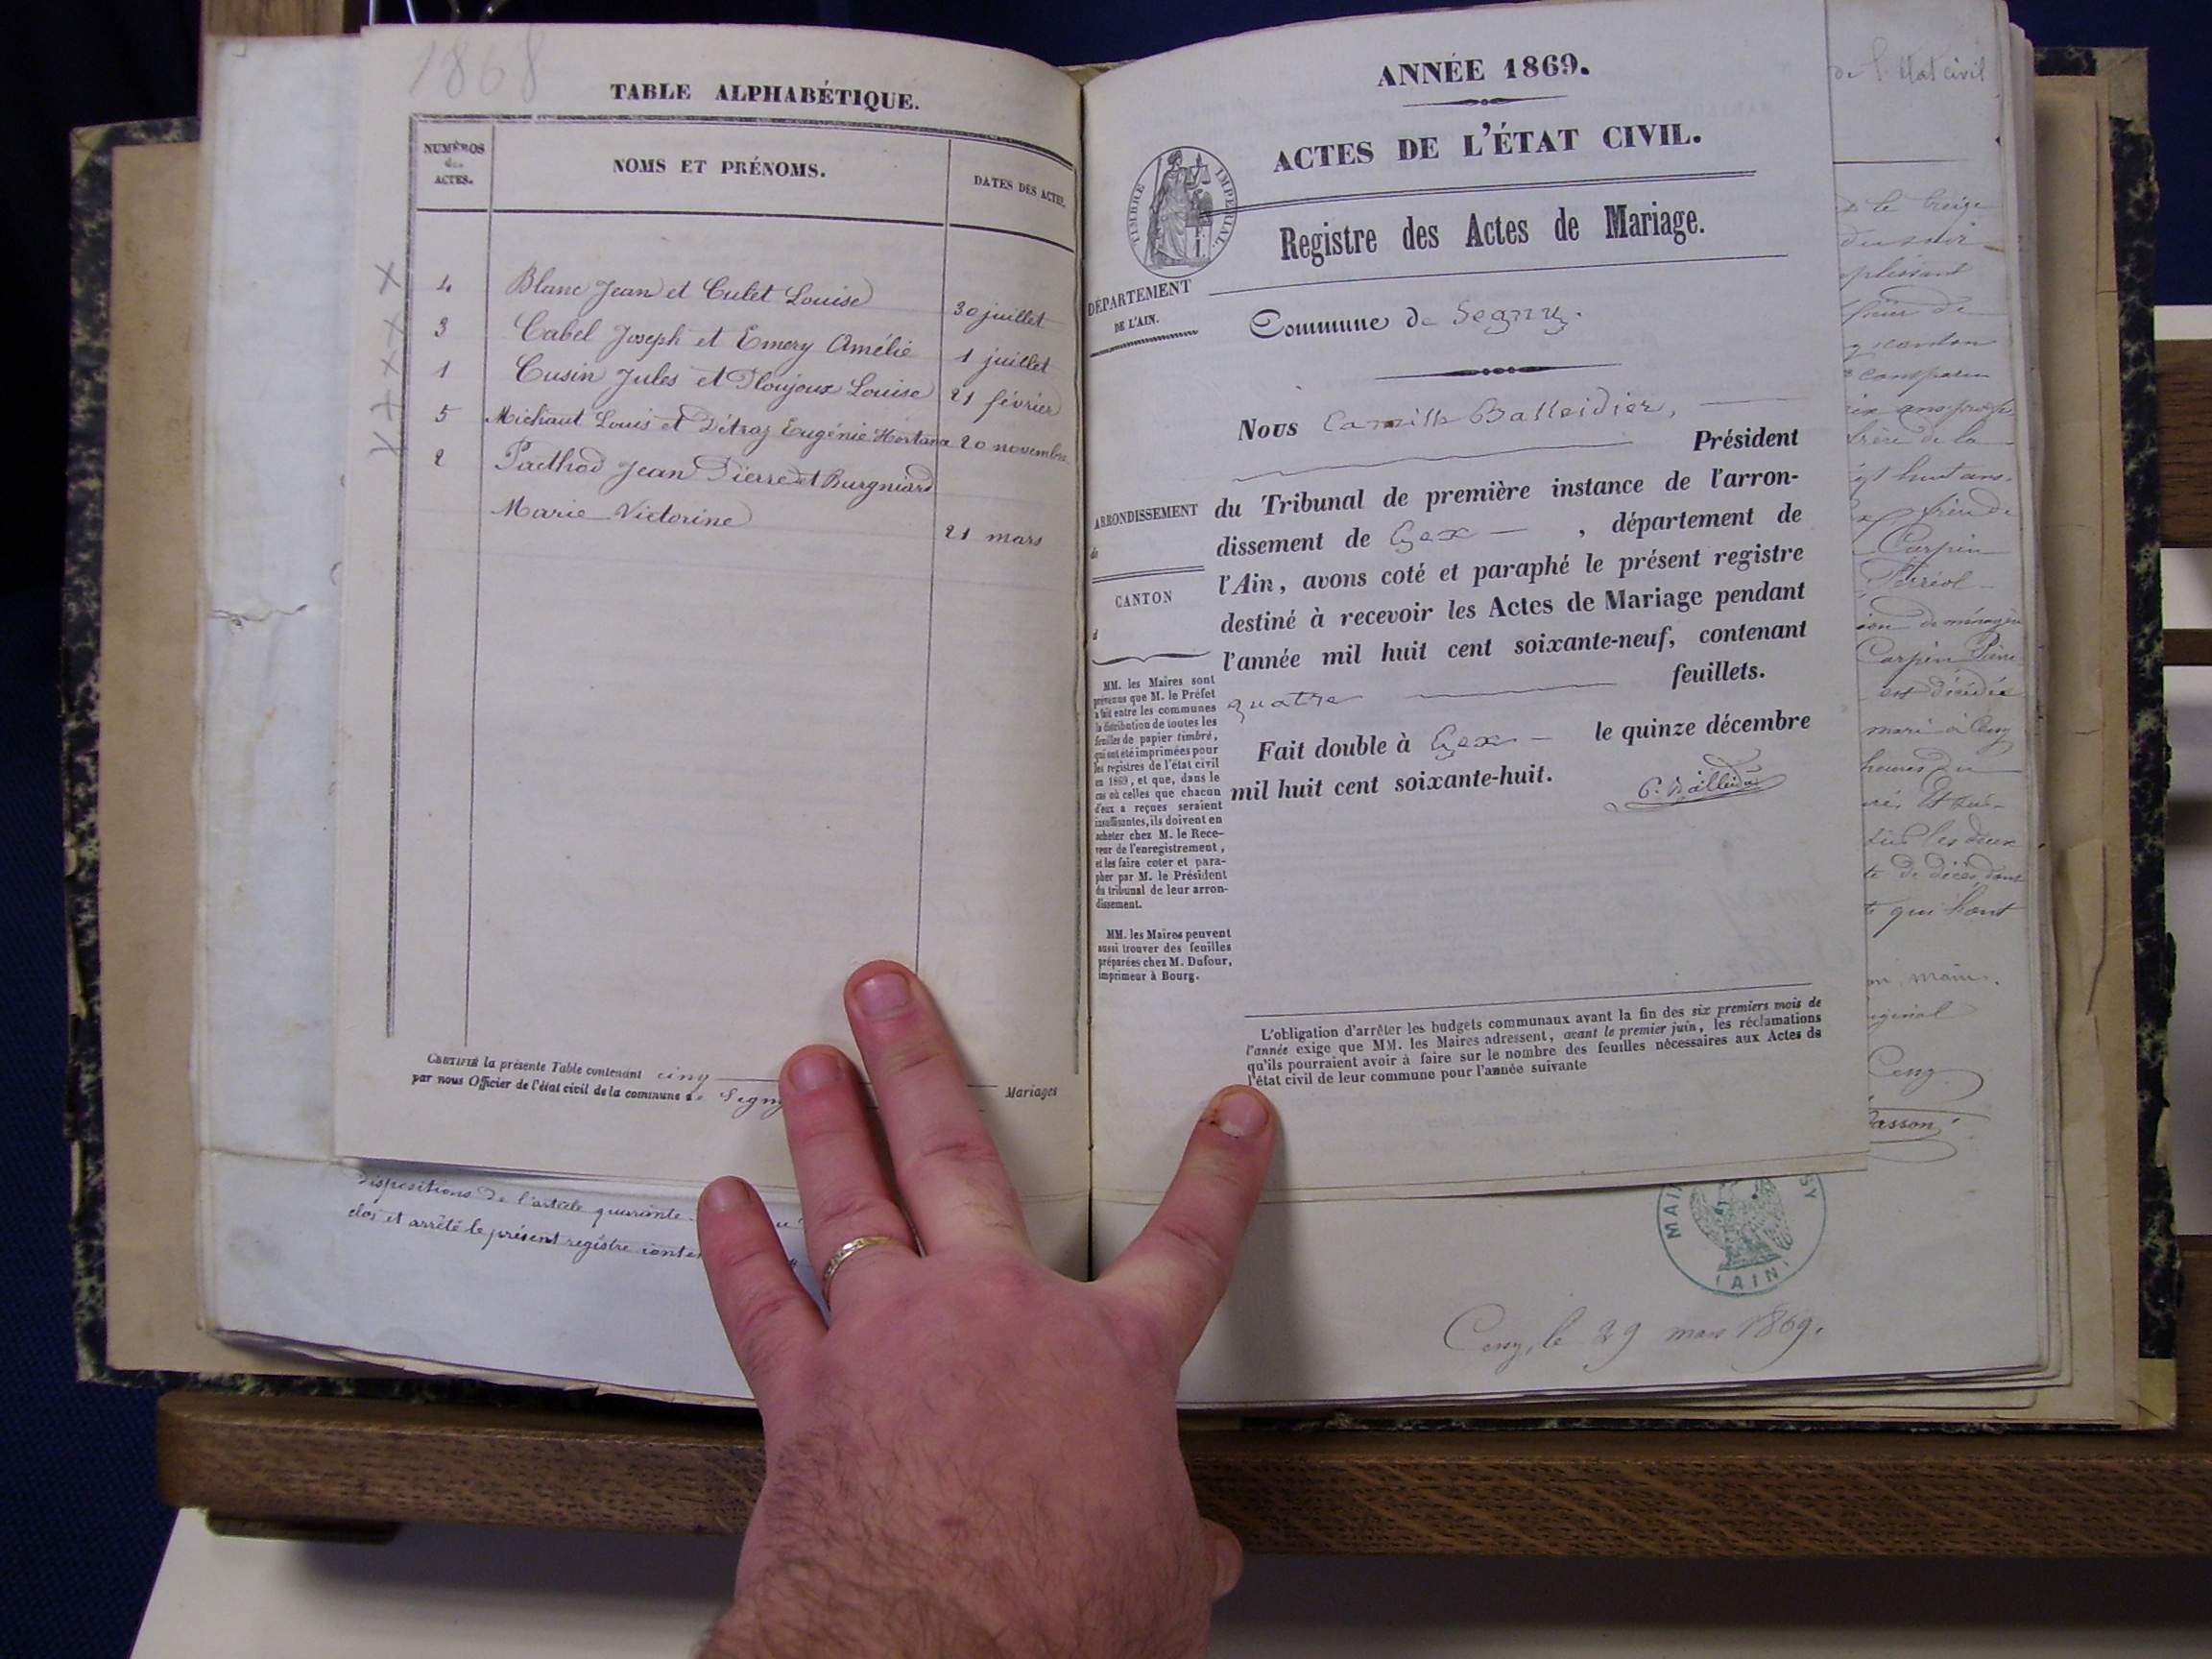 1868
TABLE ALPHABÉTIQUE.
NUMÉROS
des
ACTES.
NOMS ET PRÉNOMS.
DATES DES ACTES.
4 Blanc Jean et Culet Louise 30 juillet
3 Cabel Joseph et Emery Amélie 1 juillet
1 Cusin Jules et Ploujoux Louise 21 février
5 Michaut Louis et Détraz Eugénie Hortana 20 novembre
2 Paethod Jean Pierre et Burgniard
Marie Victorine 21 mars
CERTIFIÉ la présente Table contenant cinq Mariages
par nous Officier de l'état civil de la commune de Segny
dispositions de l'article quarante
clos et arrêté le présent registre
ANNÉE 1869.
ACTES DE L'ÉTAT CIVIL.
TIMBRE IMPÉRIAL.
Registre des Actes de Mariage.
DÉPARTEMENT
DE L'AIN.
Commune de Segny.
Nous Camille Balleidier,
Président
ARRONDISSEMENT
de
CANTON
d
du Tribunal de première instance de l'arron-
dissement de Gex , département de
l'Ain, avons coté et paraphé le présent registre
destiné à recevoir les Actes de Mariage pendant
l'année mil huit cent soixante-neuf, contenant
quatre feuillets.
Fait double à Gex le quinze décembre
mil huit cent soixante-huit.
C. Balleidier
MM. les Maires sont
prévenus que M. le Préfet
a fait entre les communes
la distribution de toutes les
feuilles de papier timbré,
qui ont été imprimées pour
les registres de l'état civil
en 1869, et que, dans le
cas où celles que chacun
d'eux a reçues seraient
insuffisantes, ils doivent en
acheter chez M. le Rece-
veur de l'enregistrement,
et les faire coter et para-
pher par M. le Président
du tribunal de leur arron-
dissement.
MM. les Maires peuvent
aussi trouver des feuilles
préparées chez M. Dufour,
imprimeur à Bourg.
L'obligation d'arrêter les budgets communaux avant la fin des six premiers mois de
l'année exige que MM. les Maires adressent, avant le premier juin, les réclamations
qu'ils pourraient avoir à faire sur le nombre des feuilles nécessaires aux Actes de
l'état civil de leur commune pour l'année suivante
de l'état civil
canton
frère de la
huit ans.
Carpin
Carpin Pierre
est décédée
heures du
les deux
te de décès dont
te qui l'ont
main.
Cessy
Passon
MAIRIE
AIN
Cessy, le 29 mars 1869.